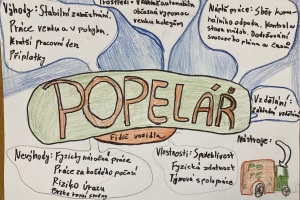 Výhody: Stabilní zaměstnání.
Práce venku a v pohybu.
Kratší pracovní den
Příplatky
Prostředí: V kabině automobilu
občasná výpomoc
venku kolegům
Náplň práce: Sběr komu-
nálního odpadu. Kontrola
stavu nádob. Dodržování
svozového plánu a časů
POPELÁŘ
Řidič vozidla
Vzdělání:
Základní vzdělání
Nevýhody: Fyzicky náročná práce
Práce za každého počasí
Riziko úrazu
Brzké ranní směny
Vlastnosti: Spolehlivost
Fyzická zdatnost
Týmová spolupráce
Nástroje: